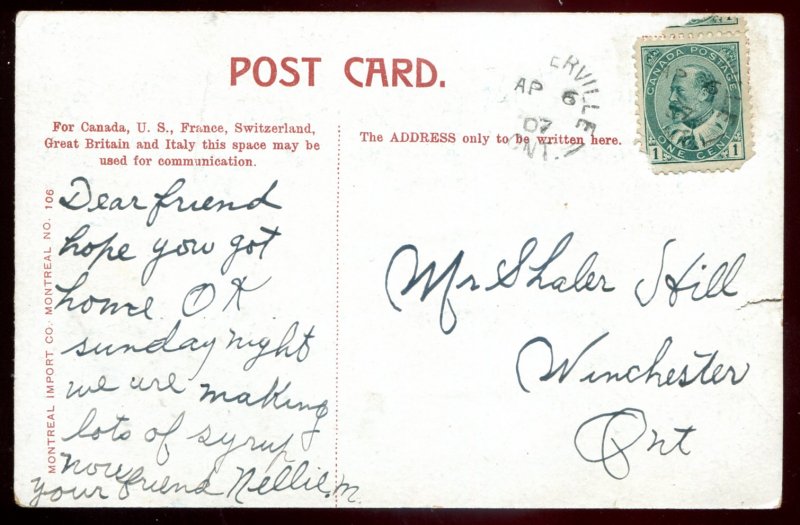 POST CARD.
For Canada, U. S., France, Switzerland,
Great Britain and Italy this space may be
used for communication.
The ADDRESS only to be written here.
MONTREAL IMPORT CO. MONTREAL NO. 106
Dear friend
hope you got
home OK
sunday night
we are making
lots of syrup
now
your friend Nellie M.
Mr Shaler Hill
Winchester
Ont
ERVILLE
AP 6
07
ONT.
CANADA POSTAGE
1 ONE CENT 1